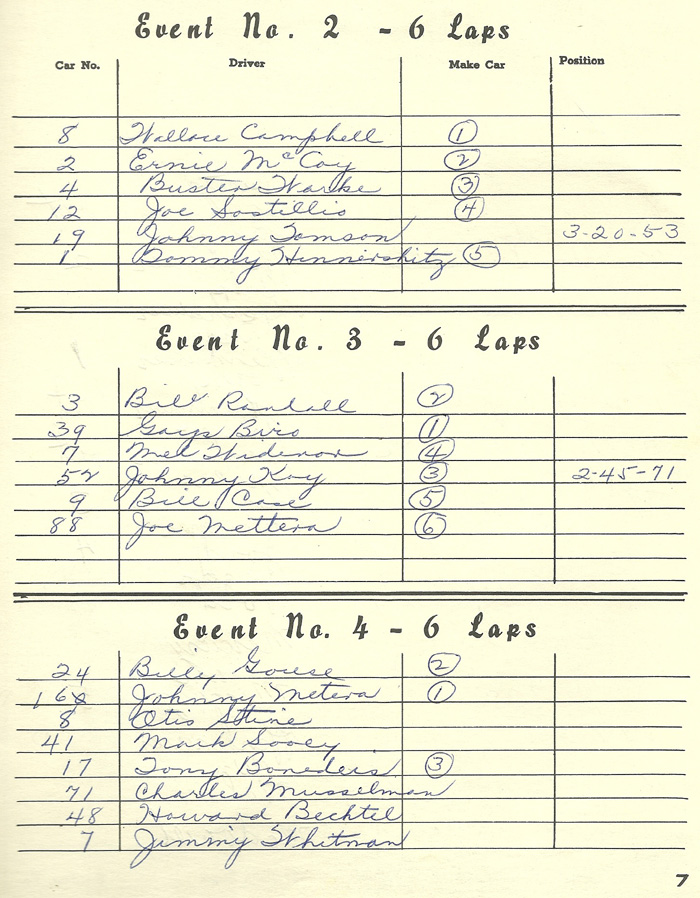 Event No. 2 - 6 Laps
Car No. Driver Make Car Position
8 Wallace Campbell 1
2 Ernie McCoy 2
4 Buster Warke 3
12 Joe Sostillio 4
19 Johnny Tomson 3-20-53
1 Tommy Hinnershitz 5
Event No. 3 - 6 Laps
3 Bill Randall 2
39 Biro 1
7 Mel Widenor 4
52 Johnny Kay 3 2-45-71
9 Bill Case 5
88 Joe Mettera 6
Event No. 4 - 6 Laps
24 Billy Gouse 2
Johnny Metera 1
8 Otis Stine
41 Mark Sooey
17 Tony Bonedeis 3
71 Charles Musselman
48 Howard Bechtel
7 Jimmy Whitman
7